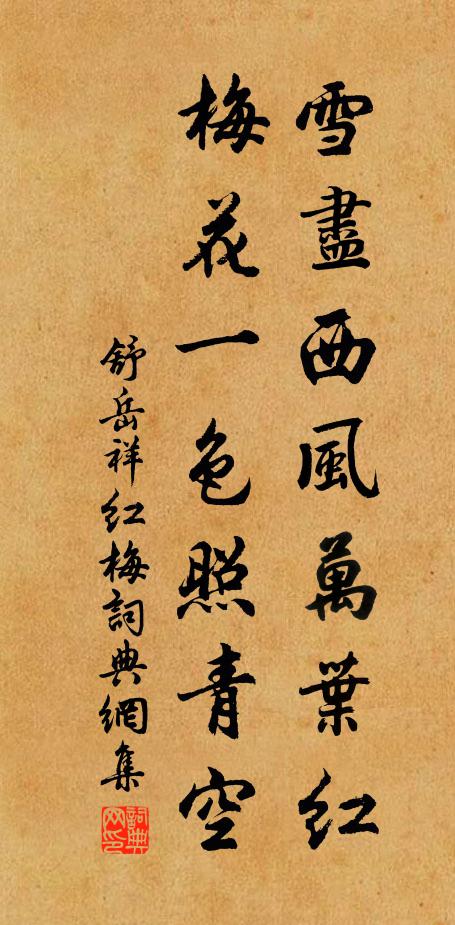 雪盡西風萬葉紅
梅花一色照青空
舒岳祥紅梅詞典網集
詞典网印